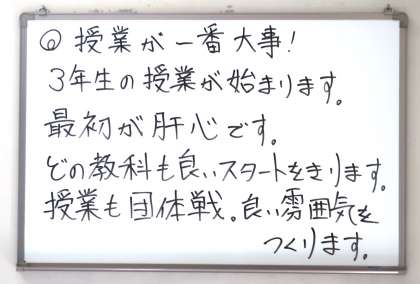 ◎授業が一番大事!
3年生の授業が始まります。
最初が肝心です。
どの教科も良いスタートをきります。
授業も団体戦。良い雰囲気を
つくります。